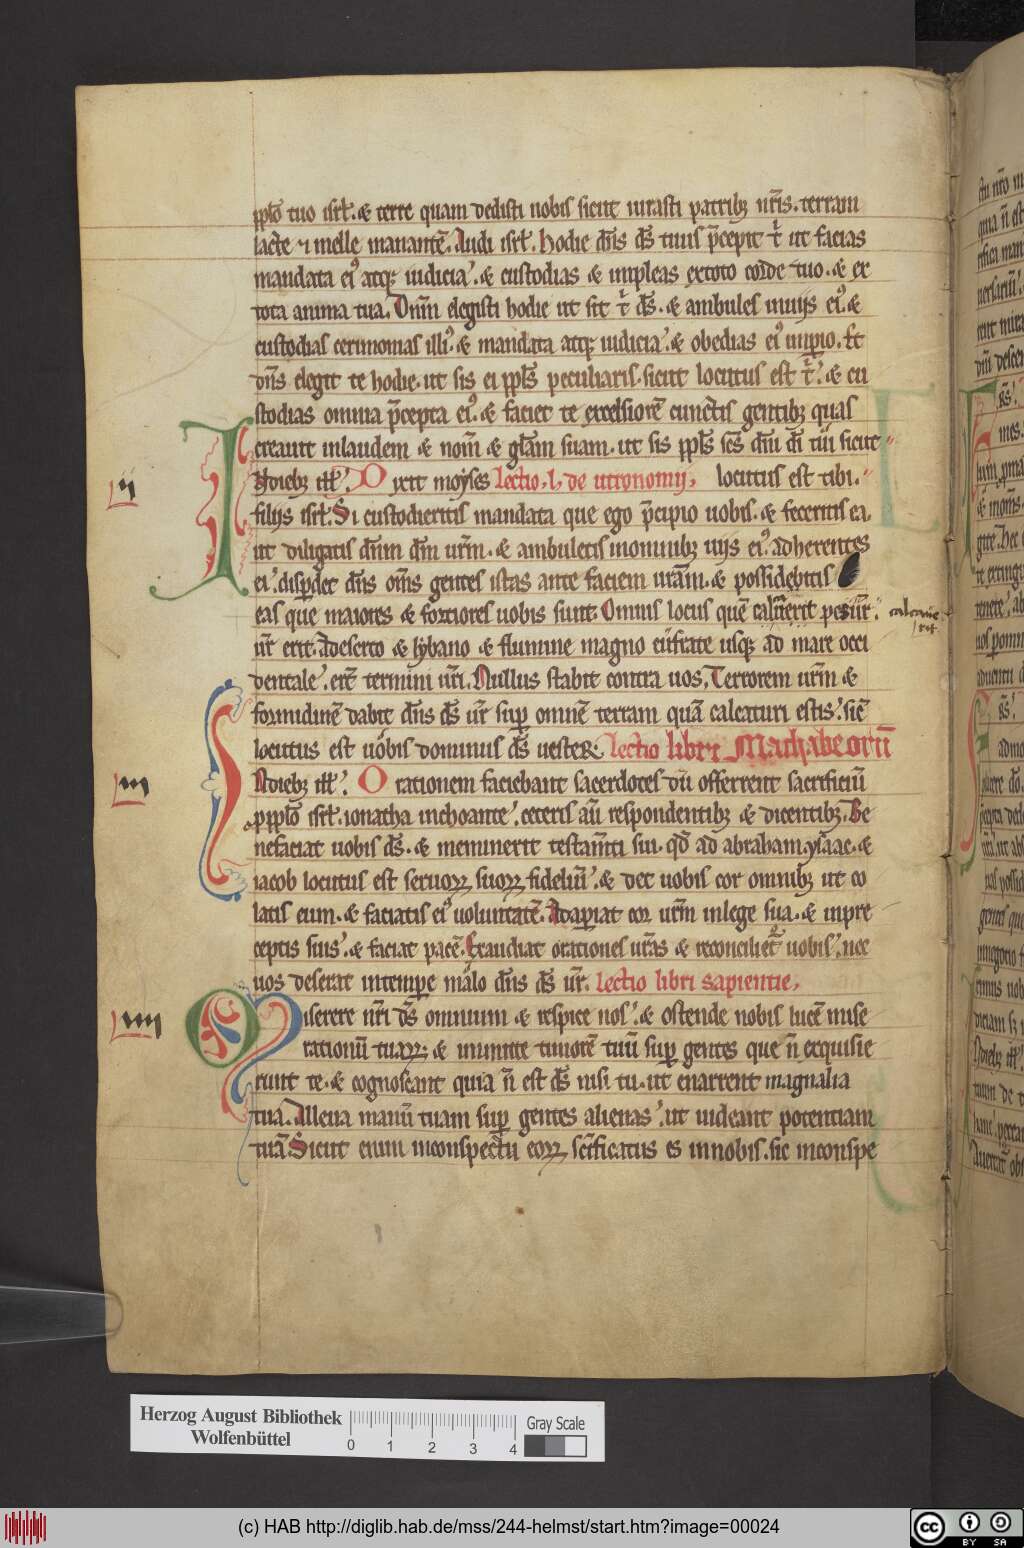 pplo tuo isrl. & terre quam dedisti nobis sicut iurasti patribꝫ nr̄is. terram
lacte ⁊ melle manantē. Audi isrl. hodie dn̄s ds̄ tuus p̄cepit t̄ ut facias
mandata eiꝰ atqꝫ iudicia. & custodias & impleas ex toto corde tuo. & ex
tota anima tua. Dnm̄ elegisti hodie ut sit t̄ ds̄. & ambules in uijs eiꝰ. &
custodias cerimonias illiꝰ. & mandata atqꝫ iudicia. & obedias eiꝰ imꝑio. Et
dn̄s elegit te hodie. ut sis ei ppls̄ peculiaris. sicut locutus est t̄. & cu
stodias omnia p̄cepta eiꝰ. & faciet te excelsiorē cunctis gentibꝫ quas
creauit inlaudem & nom̄ & glām suam. ut sis ppls̄ scs̄ dn̄i dī tui sicut
locutus est tibi.
IN diebꝫ ill̄. Dixit moyses lectio. l. de utronomij.
filijs isrl. Si custodieritis mandata que ego p̄cipio uobis. & feceritis ea.
ut diligatis dn̄m dm̄ ur̄m. & ambuletis inomnibꝫ uijs eiꝰ. adherentes
ei. disꝑdet dn̄s om̄s gentes istas ante faciem urām. & possidebitis
eas que maiores & fortiores uobis sunt. Omnis locus quē calcauerit pes ur̄.
calcaue
rit
ur̄ erit. Adeserto & lybano & flumine magno eufrate usqꝫ ad mare occi
dentale. erūt termini ur̄i. Nullus stabit contra uos. Terrorem ur̄m &
formidinē dabit dn̄s ds̄ ur̄ suꝑ omnē terram quā calcaturi estis. sic̄
locutus est uobis dominus ds̄ uester. lectio libri Machabeorū
IN diebꝫ ill̄. Orationem faciebant sacerdotes dū offerrent sacrificiū
ꝓpplo isrl. ionatha inchoante. ceteris aū respondentibꝫ & dicentibꝫ. Be
nefaciat uobis ds̄. & meminerit testam̄ti sui. qd̄ ad abraham ysaac. &
iacob locutus est seruoꝝ suoꝝ fideliū. & det uobis cor omnibꝫ ut co
latis eum. & faciatis eiꝰ uoluntatē. Adaꝑiat cor ur̄m inlege sua. & inpre
ceptis suis. & faciat pacē. Exaudiat orationes urās & reconciliet uobis. nec
uos deserat intempore malo dn̄s ds̄ ur̄. lectio libri sapientie.
Miserere nr̄i ds̄ omnium & respice nos. & ostende nobis lucē mise
rationū tuaꝝ. & inmitte timorē tuū suꝑ gentes que n̄ exquisie
runt te. & cognoscant quia n̄ est ds̄ nisi tu. ut enarrent magnalia
tua. Alleua manū tuam suꝑ gentes alienas. ut uideant potentiam
tuā. Sicut enim inconspectu eoꝝ sc̄ificatus es innobis. sic inconspe
ij
iij
iiij
Herzog August Bibliothek
Wolfenbüttel
0 1 2 3 4
Gray Scale
(c) HAB http://diglib.hab.de/mss/244-helmst/start.htm?image=00024
cc BY SA